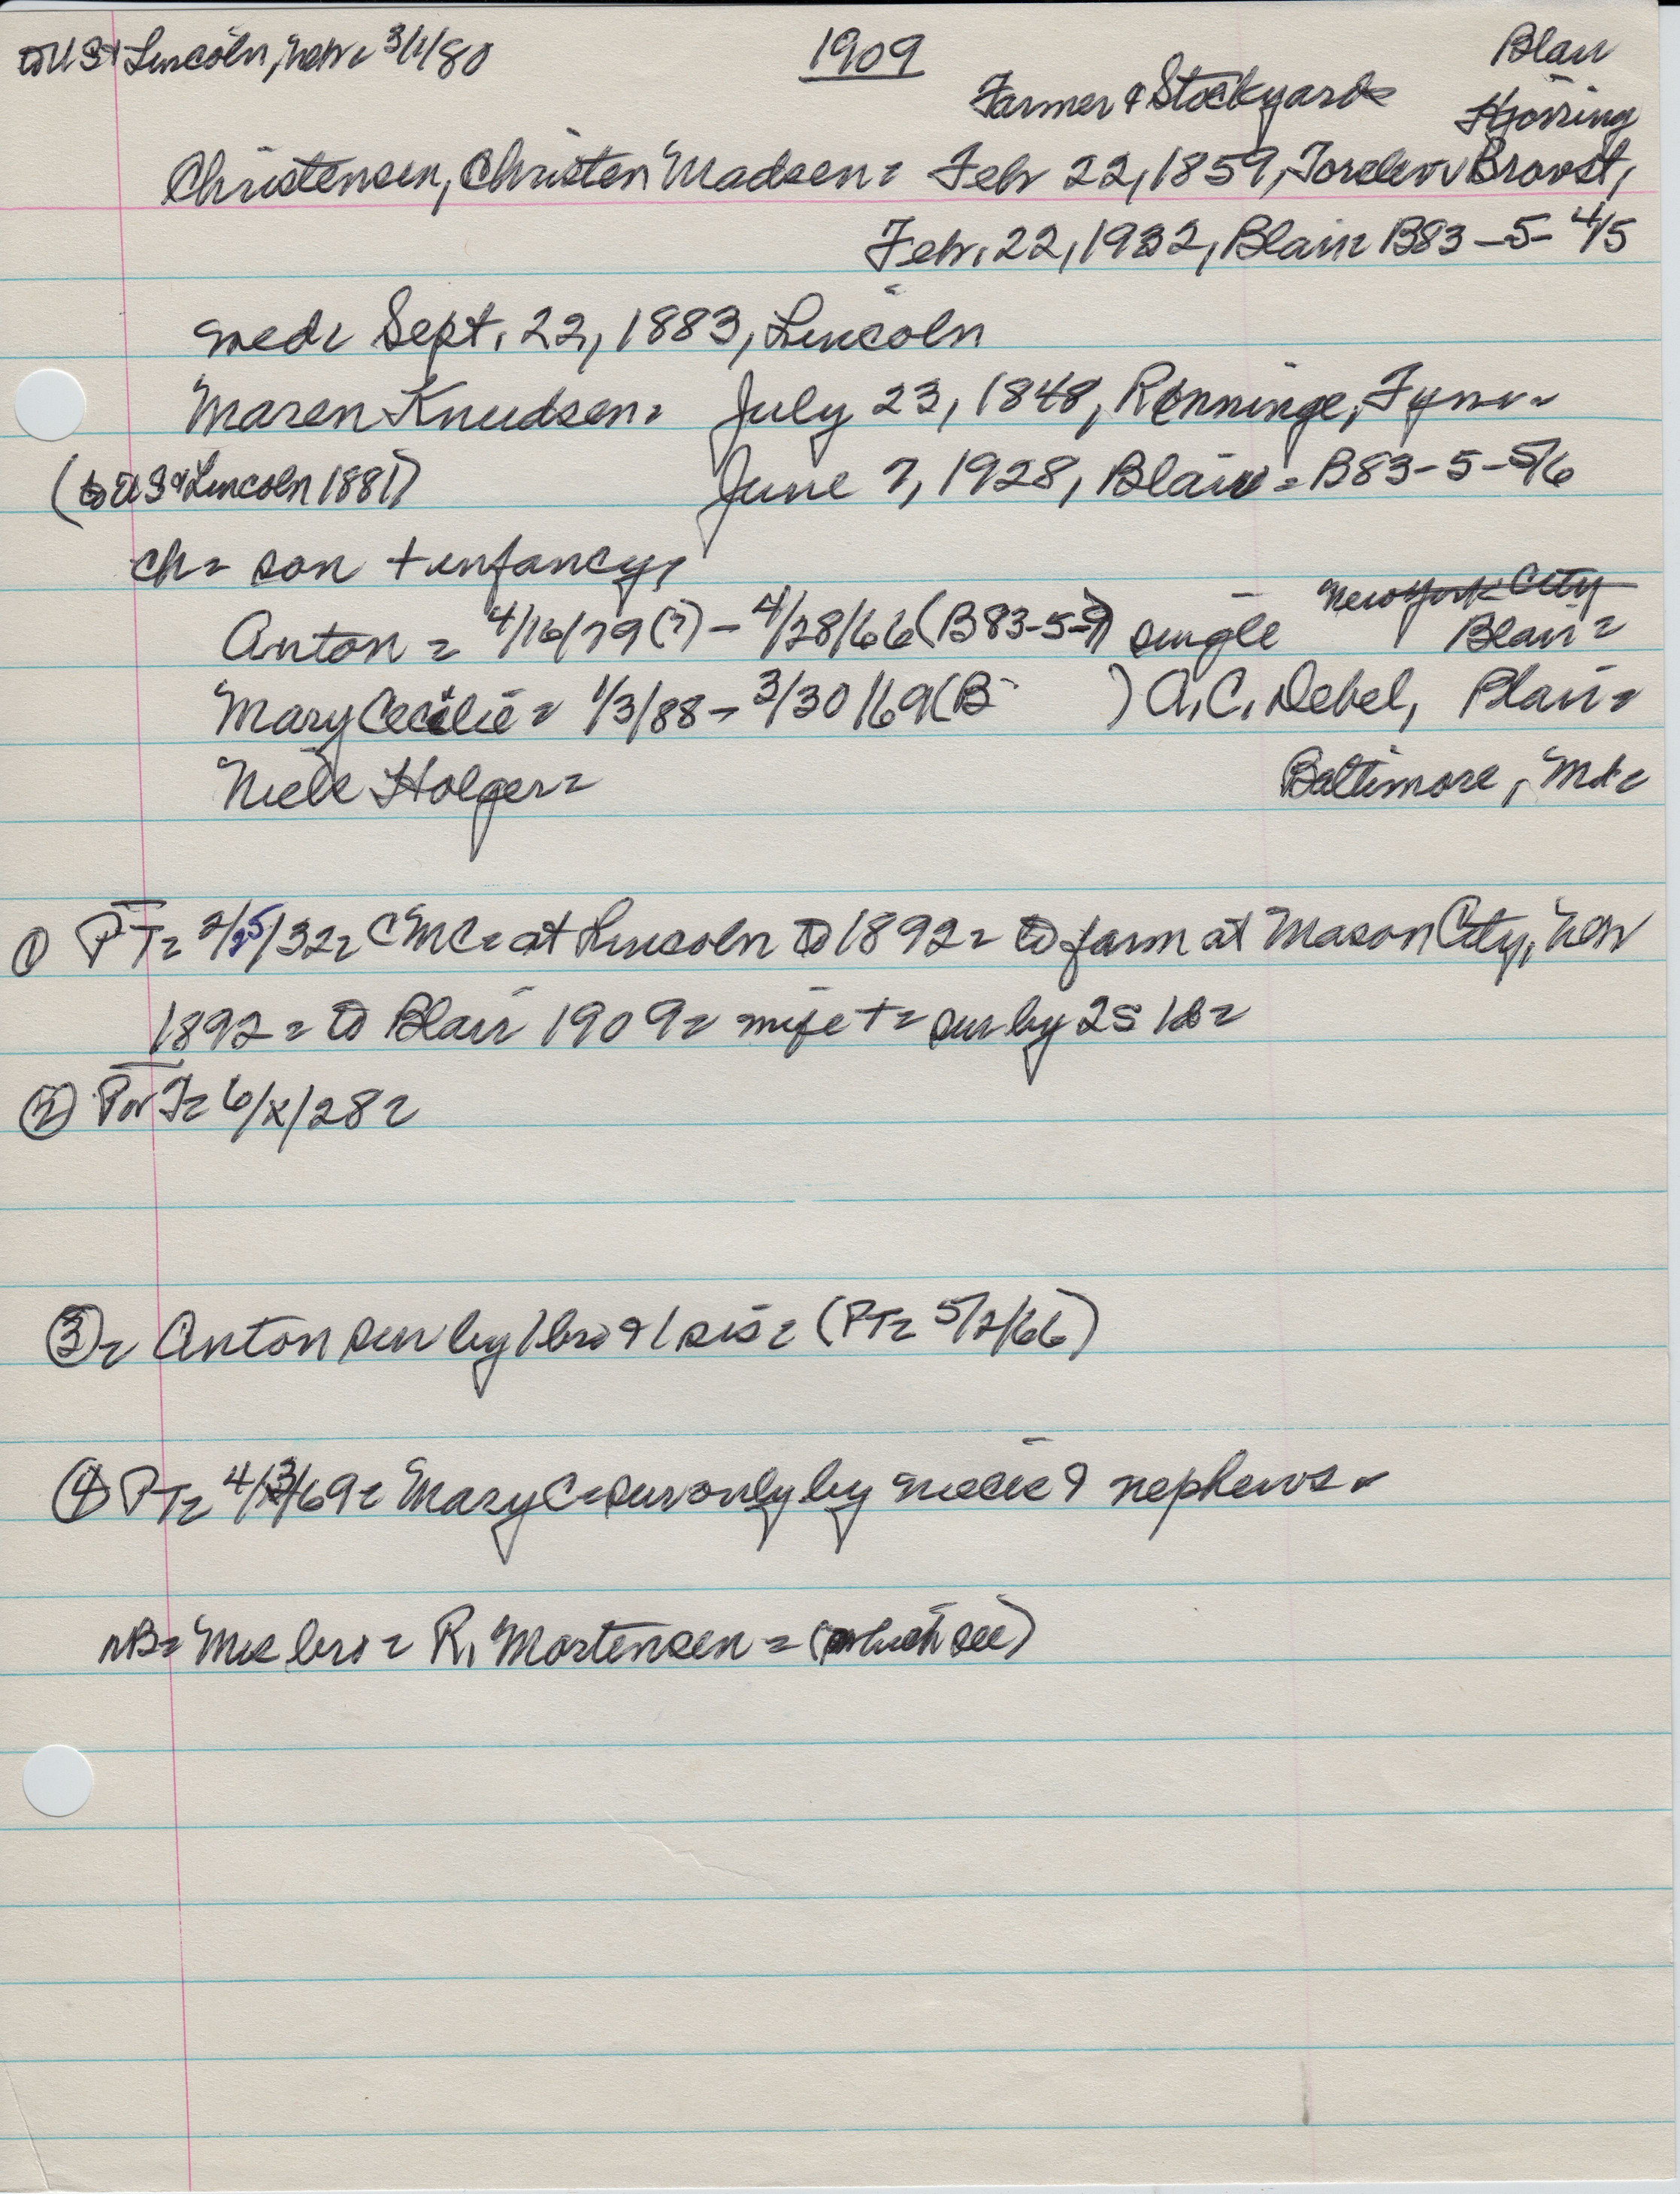 to US & Lincoln, Nebr = 3/1/80
1909
Blair
Farmer & Stockyards
Hjørring
Christensen, Christen Madsen = Febr 22, 1859, Brovst,
Febr. 22, 1932, Blair B83-5-4/5
med = Sept. 22, 1883, Lincoln
Maren Knudsen = July 23, 1848, Rønninge, Fyn =
(to US & Lincoln 1881) June 7, 1928, Blair = B83-5-5/6
ch = son + infancy,
New York City
Anton = 4/16/79 (?) - 4/28/66 (B83-5-9) single Blair =
Mary Cecilie = 1/3/88 - 3/30/69 (B- ) A.C. Debel, Blair =
Niels Holger = Baltimore, Md =
① PT = 2/25/32 = CMC = at Lincoln to 1892 = to farm at Mason City, Nebr
1892 = to Blair 1909 = wife + = sur by 2s 1d =
② P or T = 6/x/28 =
③ = Anton sur by 1 bro & 1 sis = (PT = 5/2/66)
④ PT = 4/3/69 = Mary C = sur only by niece & nephews =
NB = Mrs bro = R. Mortensen = (which see)